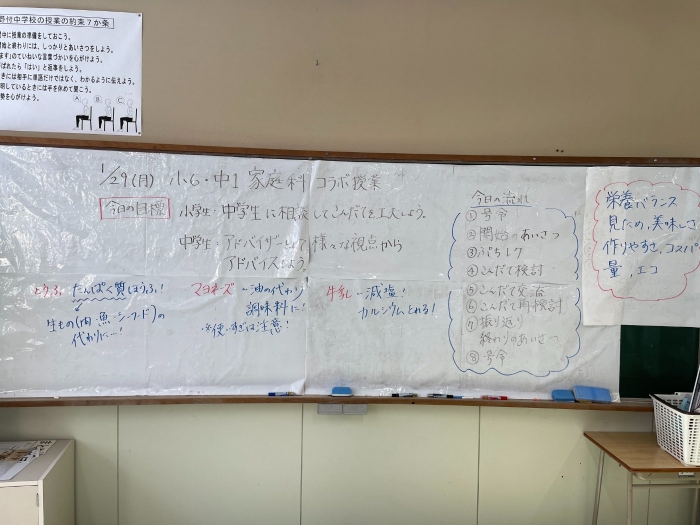 野付中学校の授業の約束7か条
に授業の準備をしておこう。
始と終わりには、しっかりとあいさつをしよう。
ます」のていねいな言葉づかいを心がけよう。
ばれたら「はい」と返事をしよう。
ときには相手に単語だけではなく、わかるように伝えよう。
明しているときには手を休めて聞こう。
勢を心がけよう。
A B C
1/29(月) 小6・中1 家庭科 コラボ授業
今日の目標
小学生:中学生に相談してこんだてを工夫しよう。
中学生:アドバイザーとして様々な視点から
アドバイスしよう。
とうふ たんぱく質ほうふ!
生もの(肉・魚=シーフード)の
代わりに…!
マヨネーズ →油の代わり
調味料に!
※使いすぎは注意!
牛乳→減塩!
カルシウムとれる!
今日の流れ
①号令
②開始のあいさつ
③ぷちレク
④こんだて検討
⑤こんだて交流
⑥こんだて再検討
⑦振り返り
終わりのあいさつ
⑧号令
栄養バランス
見ため、美味しさ
作りやすさ、コスパ
量、エコ